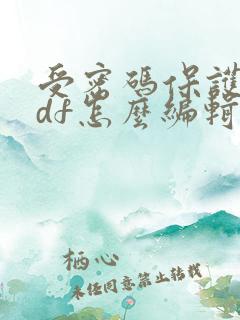 受密碼保護
df怎麼編輯
栖心
未经同意禁止转载